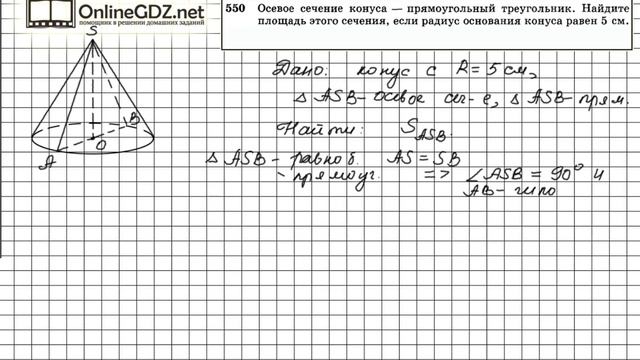 OnlineGDZ.net
помощник в выполнении домашних заданий
550 Осевое сечение конуса — прямоугольный треугольник. Найдите
площадь этого сечения, если радиус основания конуса равен 5 см.
S
A
O
B
Дано: конус с R = 5 см,
△ ASB - осевое сеч-е, △ ASB - прям.
Найти: S ASB.
△ ASB - равноб. AS = SB
- прямоуг. => ∠ASB = 90° и
AB - гипо